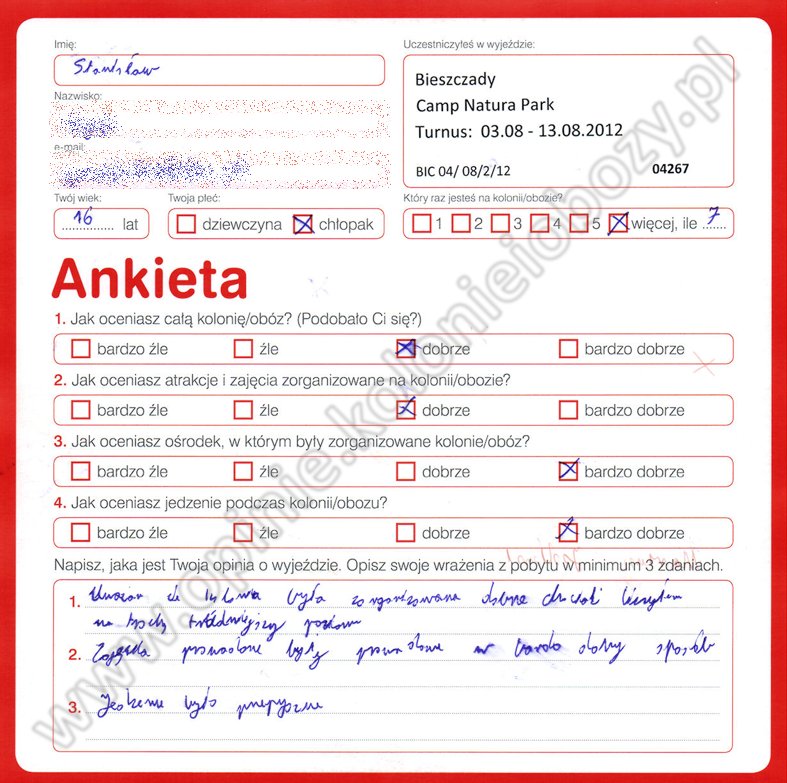 Imię:
Stanisław
Uczestniczyłeś w wyjeździe:
Bieszczady
Camp Natura Park
Turnus: 03.08 - 13.08.2012
BIC 04/ 08/2/12 04267
Nazwisko:
e-mail:
Twój wiek: Twoja płeć: Który raz jesteś na kolonii/obozie?
16 lat dziewczyna chłopak 1 2 3 4 5 więcej, ile 7
Ankieta
1. Jak oceniasz całą kolonię/obóz? (Podobało Ci się?)
bardzo źle źle dobrze bardzo dobrze
2. Jak oceniasz atrakcje i zajęcia zorganizowane na kolonii/obozie?
bardzo źle źle dobrze bardzo dobrze
3. Jak oceniasz ośrodek, w którym były zorganizowane kolonie/obóz?
bardzo źle źle dobrze bardzo dobrze
4. Jak oceniasz jedzenie podczas kolonii/obozu?
bardzo źle źle dobrze bardzo dobrze
Napisz, jaka jest Twoja opinia o wyjeździe. Opisz swoje wrażenia z pobytu w minimum 3 zdaniach.
1. Uważam że była zorganizowana dobrze chociaż liczyłem
na trochę poziom
2. Zajęcia prowadzone były w bardo dobry sposób
3. Jedzenie było przepyszne
www.opinie.kolonieiobozy.pl